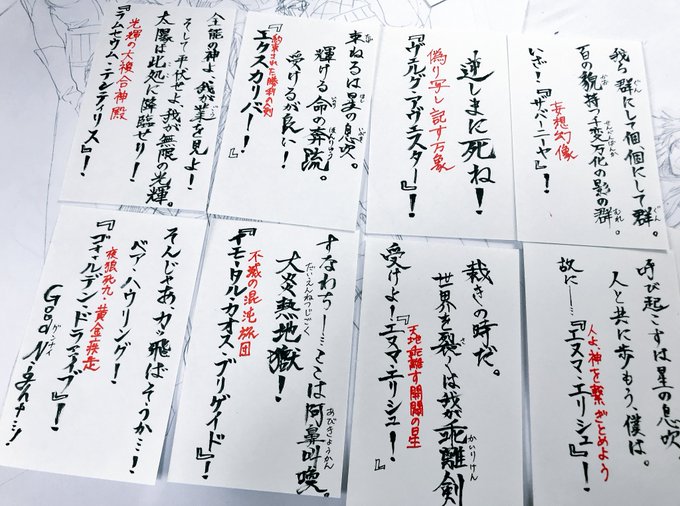 我ら群にして個、個にして群。
百の貌持つ千変万化の影の群。
いざ!『ザバーニーヤ』!
妄想幻像
逆しまに死ね!
偽り写し記す万象
『ヴェルグ・アヴェスター』!
束ねるは星の息吹。
輝ける命の奔流。
受けるが良い!
約束された勝利の剣
『エクスカリバー!!』
全能の神よ、我が業を見よ!
そして平伏せよ、我が無限の光輝。
太陽は此処に降臨せり!
光輝の大複合神殿
『ラムセウム・テンティリス』!
呼び起こすは星の息吹。
人と共に歩もう、僕は。
故に……『エヌマ・エリシュ』!
人よ、神を繋ぎとめよう
裁きの時だ。
世界を裂くは我が乖離剣
受けよ!『エヌマ・エリシュ』!
天地乖離す開闢の星
すなわち!……ここは阿鼻叫喚。
大炎熱地獄!
不滅の混沌旅団
『イモータル・カオス・ブリゲイド』!
そんじゃあ、カッ飛ばそうか…!
ベア・ハウリング!
夜狼死九・黄金疾走
『ゴォールデン・ドライブ』!
Good Night…!